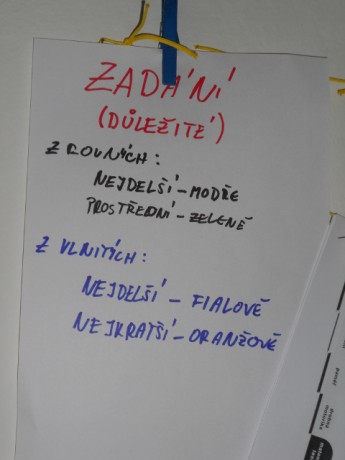 ZADÁNÍ
(DŮLEŽITÉ)
Z ROVNÝCH:
NEJDELŠÍ - MODŘE
PROSTŘEDNÍ - ZELENĚ
Z VLNITÝCH:
NEJDELŠÍ - FIALOVĚ
NEJKRATŠÍ - ORANŽOVĚ